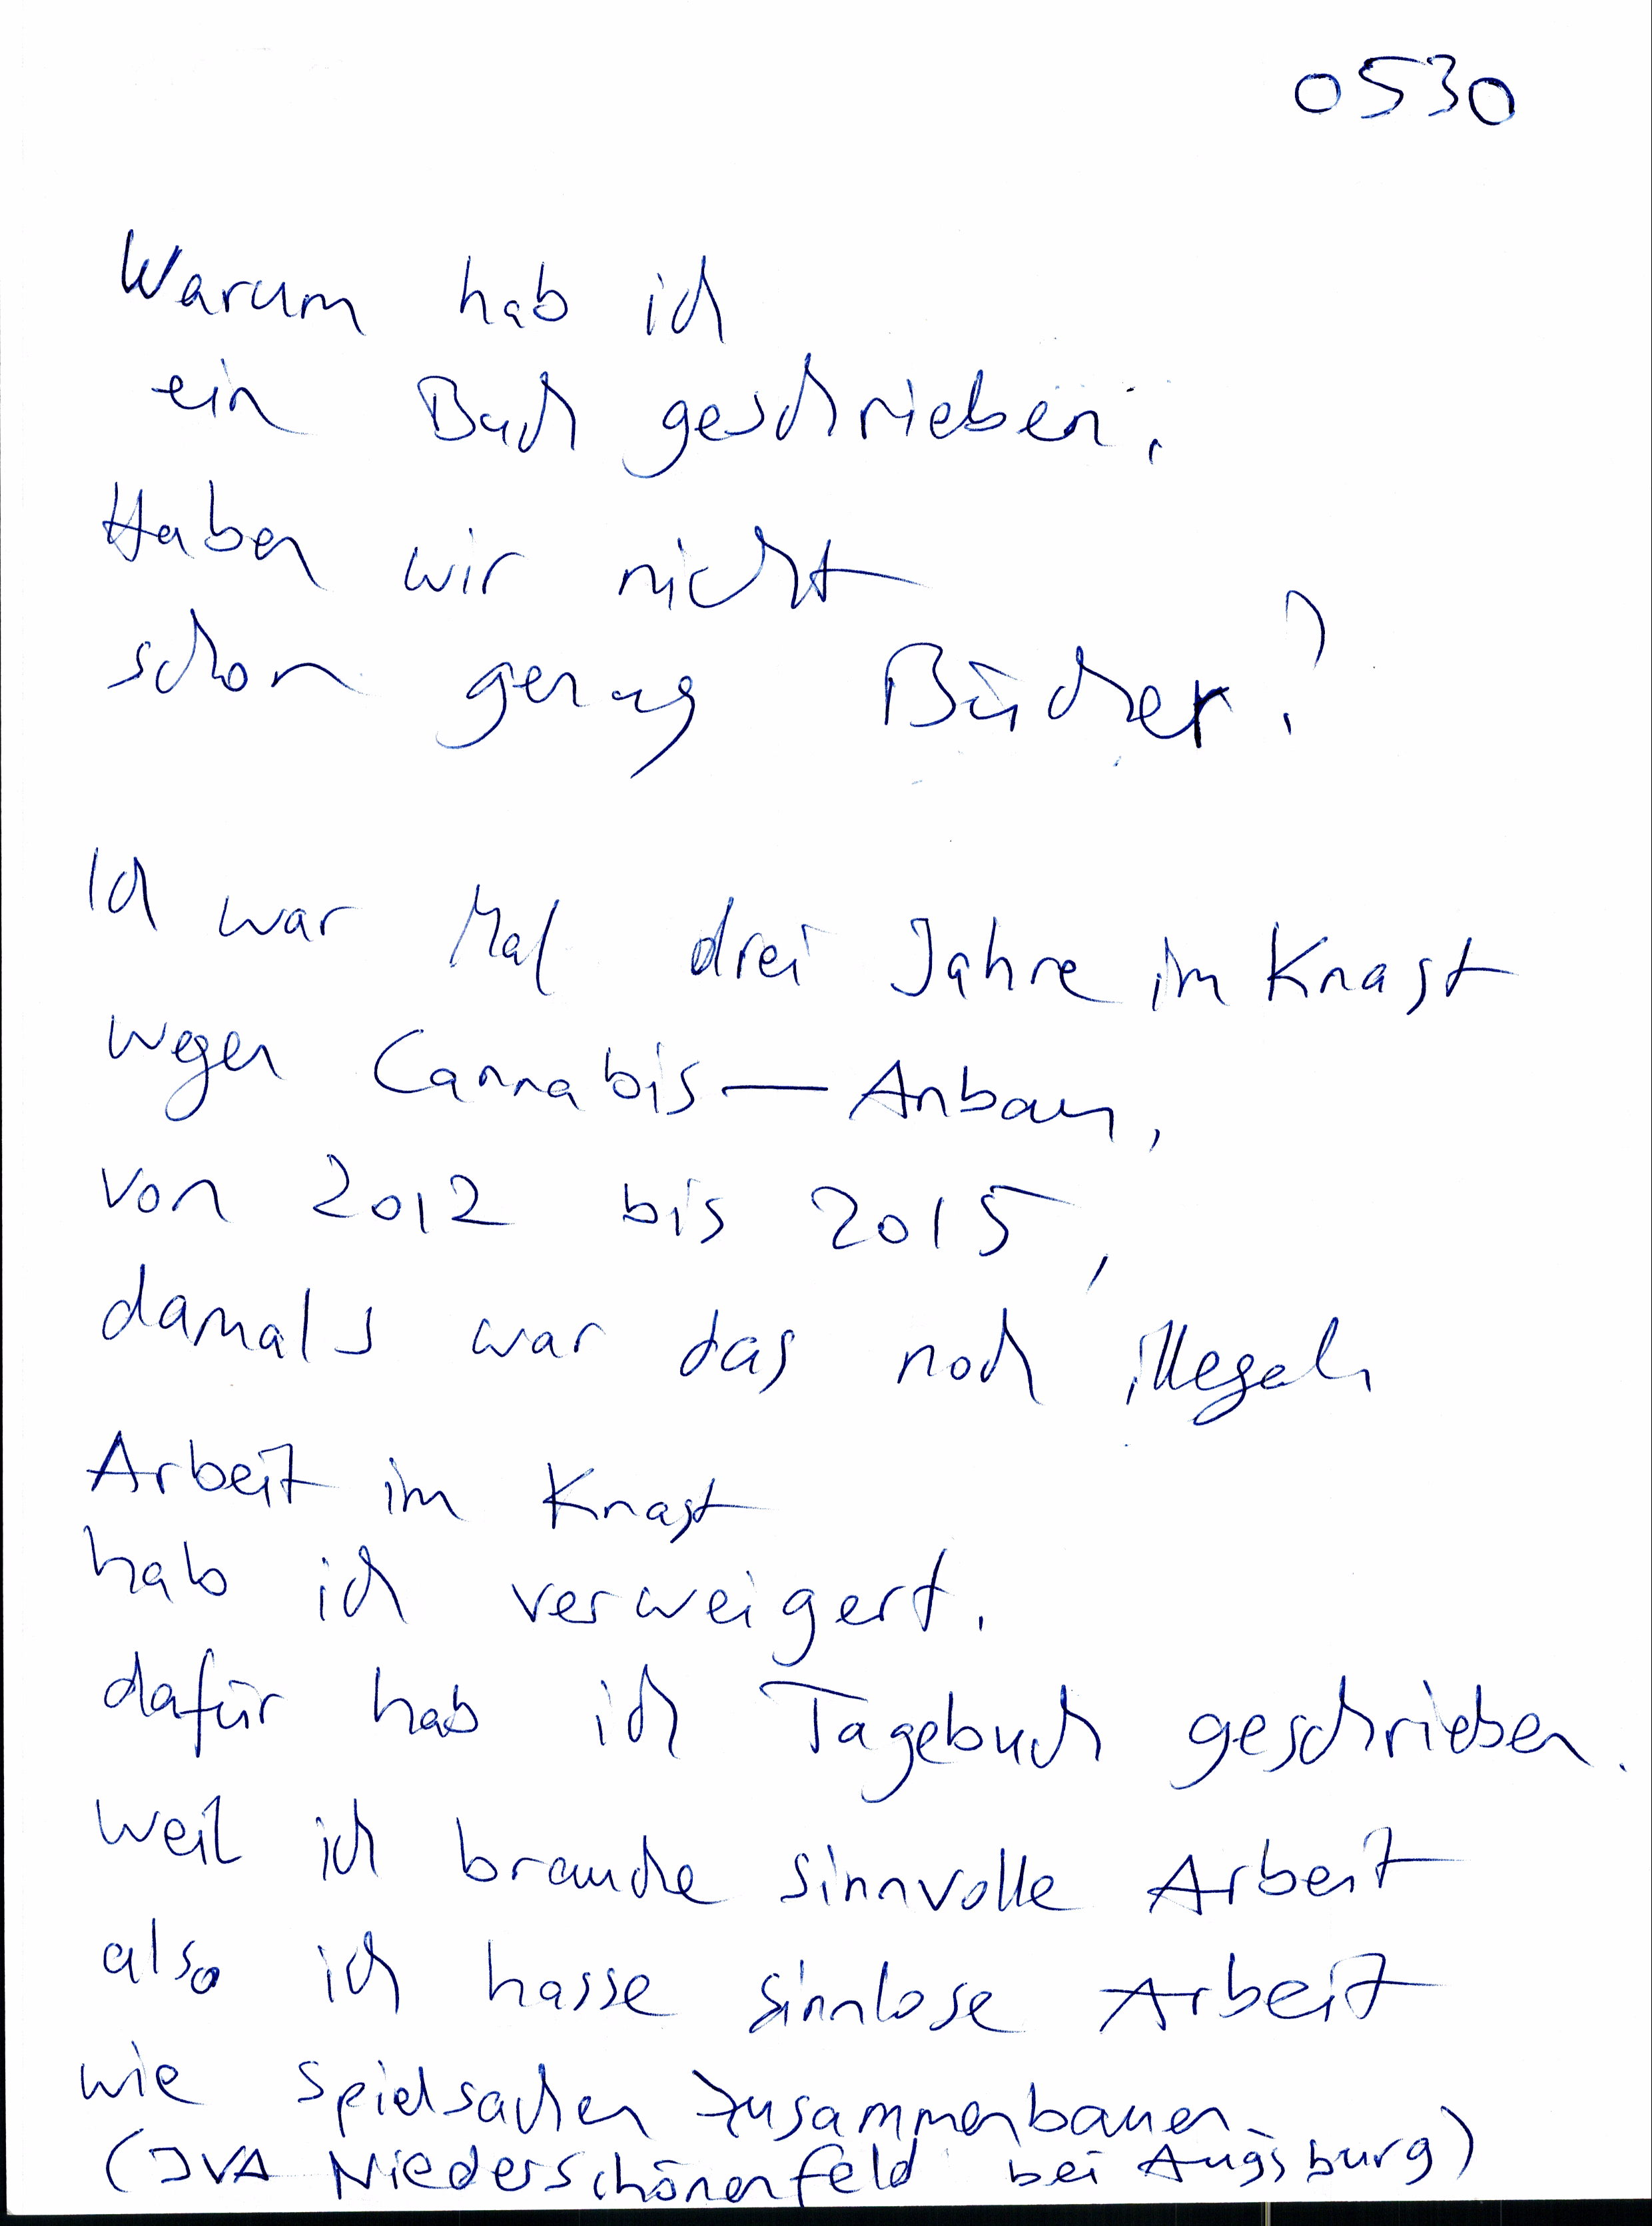 0530
Warum hab ich
ein Buch geschrieben.
Haben wir nicht
schon genug Bücher?
Ich war Mal drei Jahre im Knast
wegen Cannabis-Anbau,
von 2012 bis 2015,
damals war das noch illegal.
Arbeit im Knast
hab ich verweigert.
dafür hab ich Tagebuch geschrieben.
weil ich brauche sinnvolle Arbeit
also ich hasse sinnlose Arbeit
wie Spielsachen zusammenbauen.
(JVA Niederschönenfeld bei Augsburg)